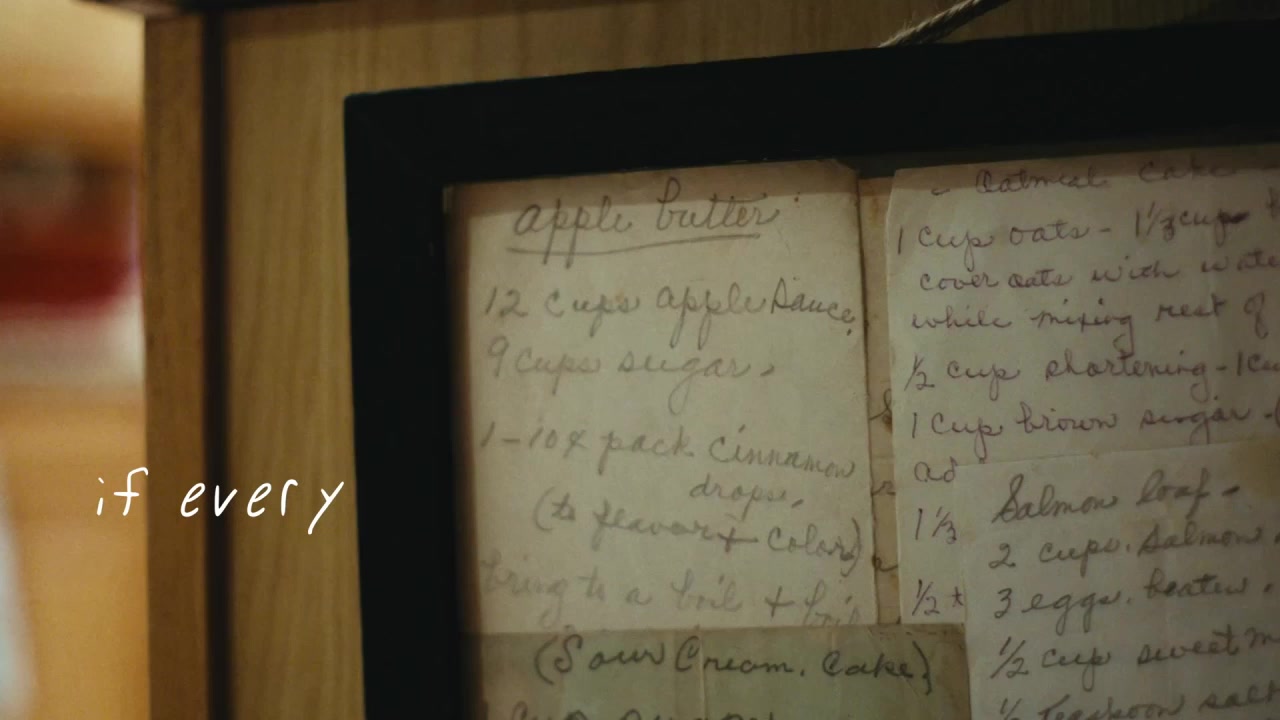 if every
apple butter
12 cups apple sauce,
9 cups sugar,
1-10¢ pack cinnamon
drops,
(to flavor + color)
bring to a boil + boil
(Sour Cream. Cake)
Oatmeal Cake
1 cup oats - 1 1/3 cups
cover oats with wate
while mixing rest of
1/2 cup shortening - 1 cu
1 cup brown sugar -
ad
1 1/3
1/2 t
Salmon loaf -
2 cups. Salmon
3 eggs. beaten.
1/2 cup sweet m
1/2 teaspoon salt